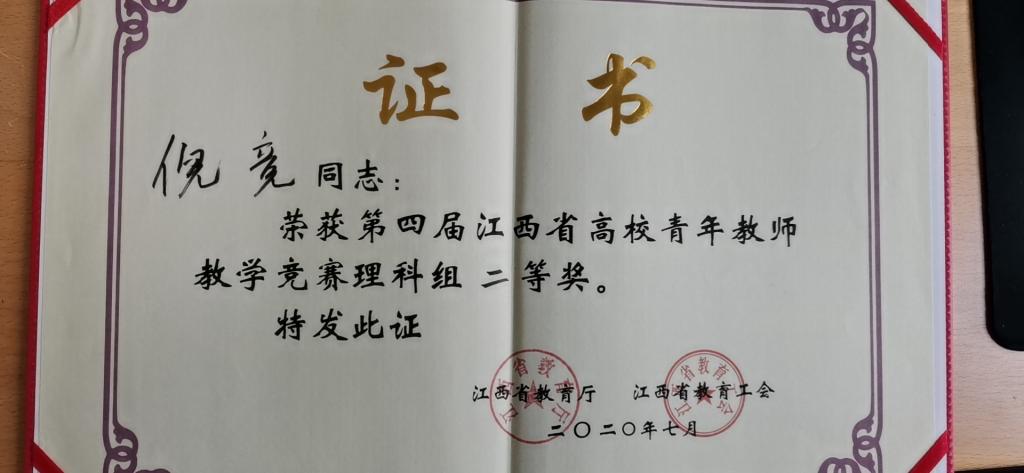 证书
倪竞同志：
荣获第四届江西省高校青年教师
教学竞赛理科组二等奖。
特发此证
江西省教育厅 江西省教育工会
二〇二〇年七月
江西省教育厅
江西省教育工会